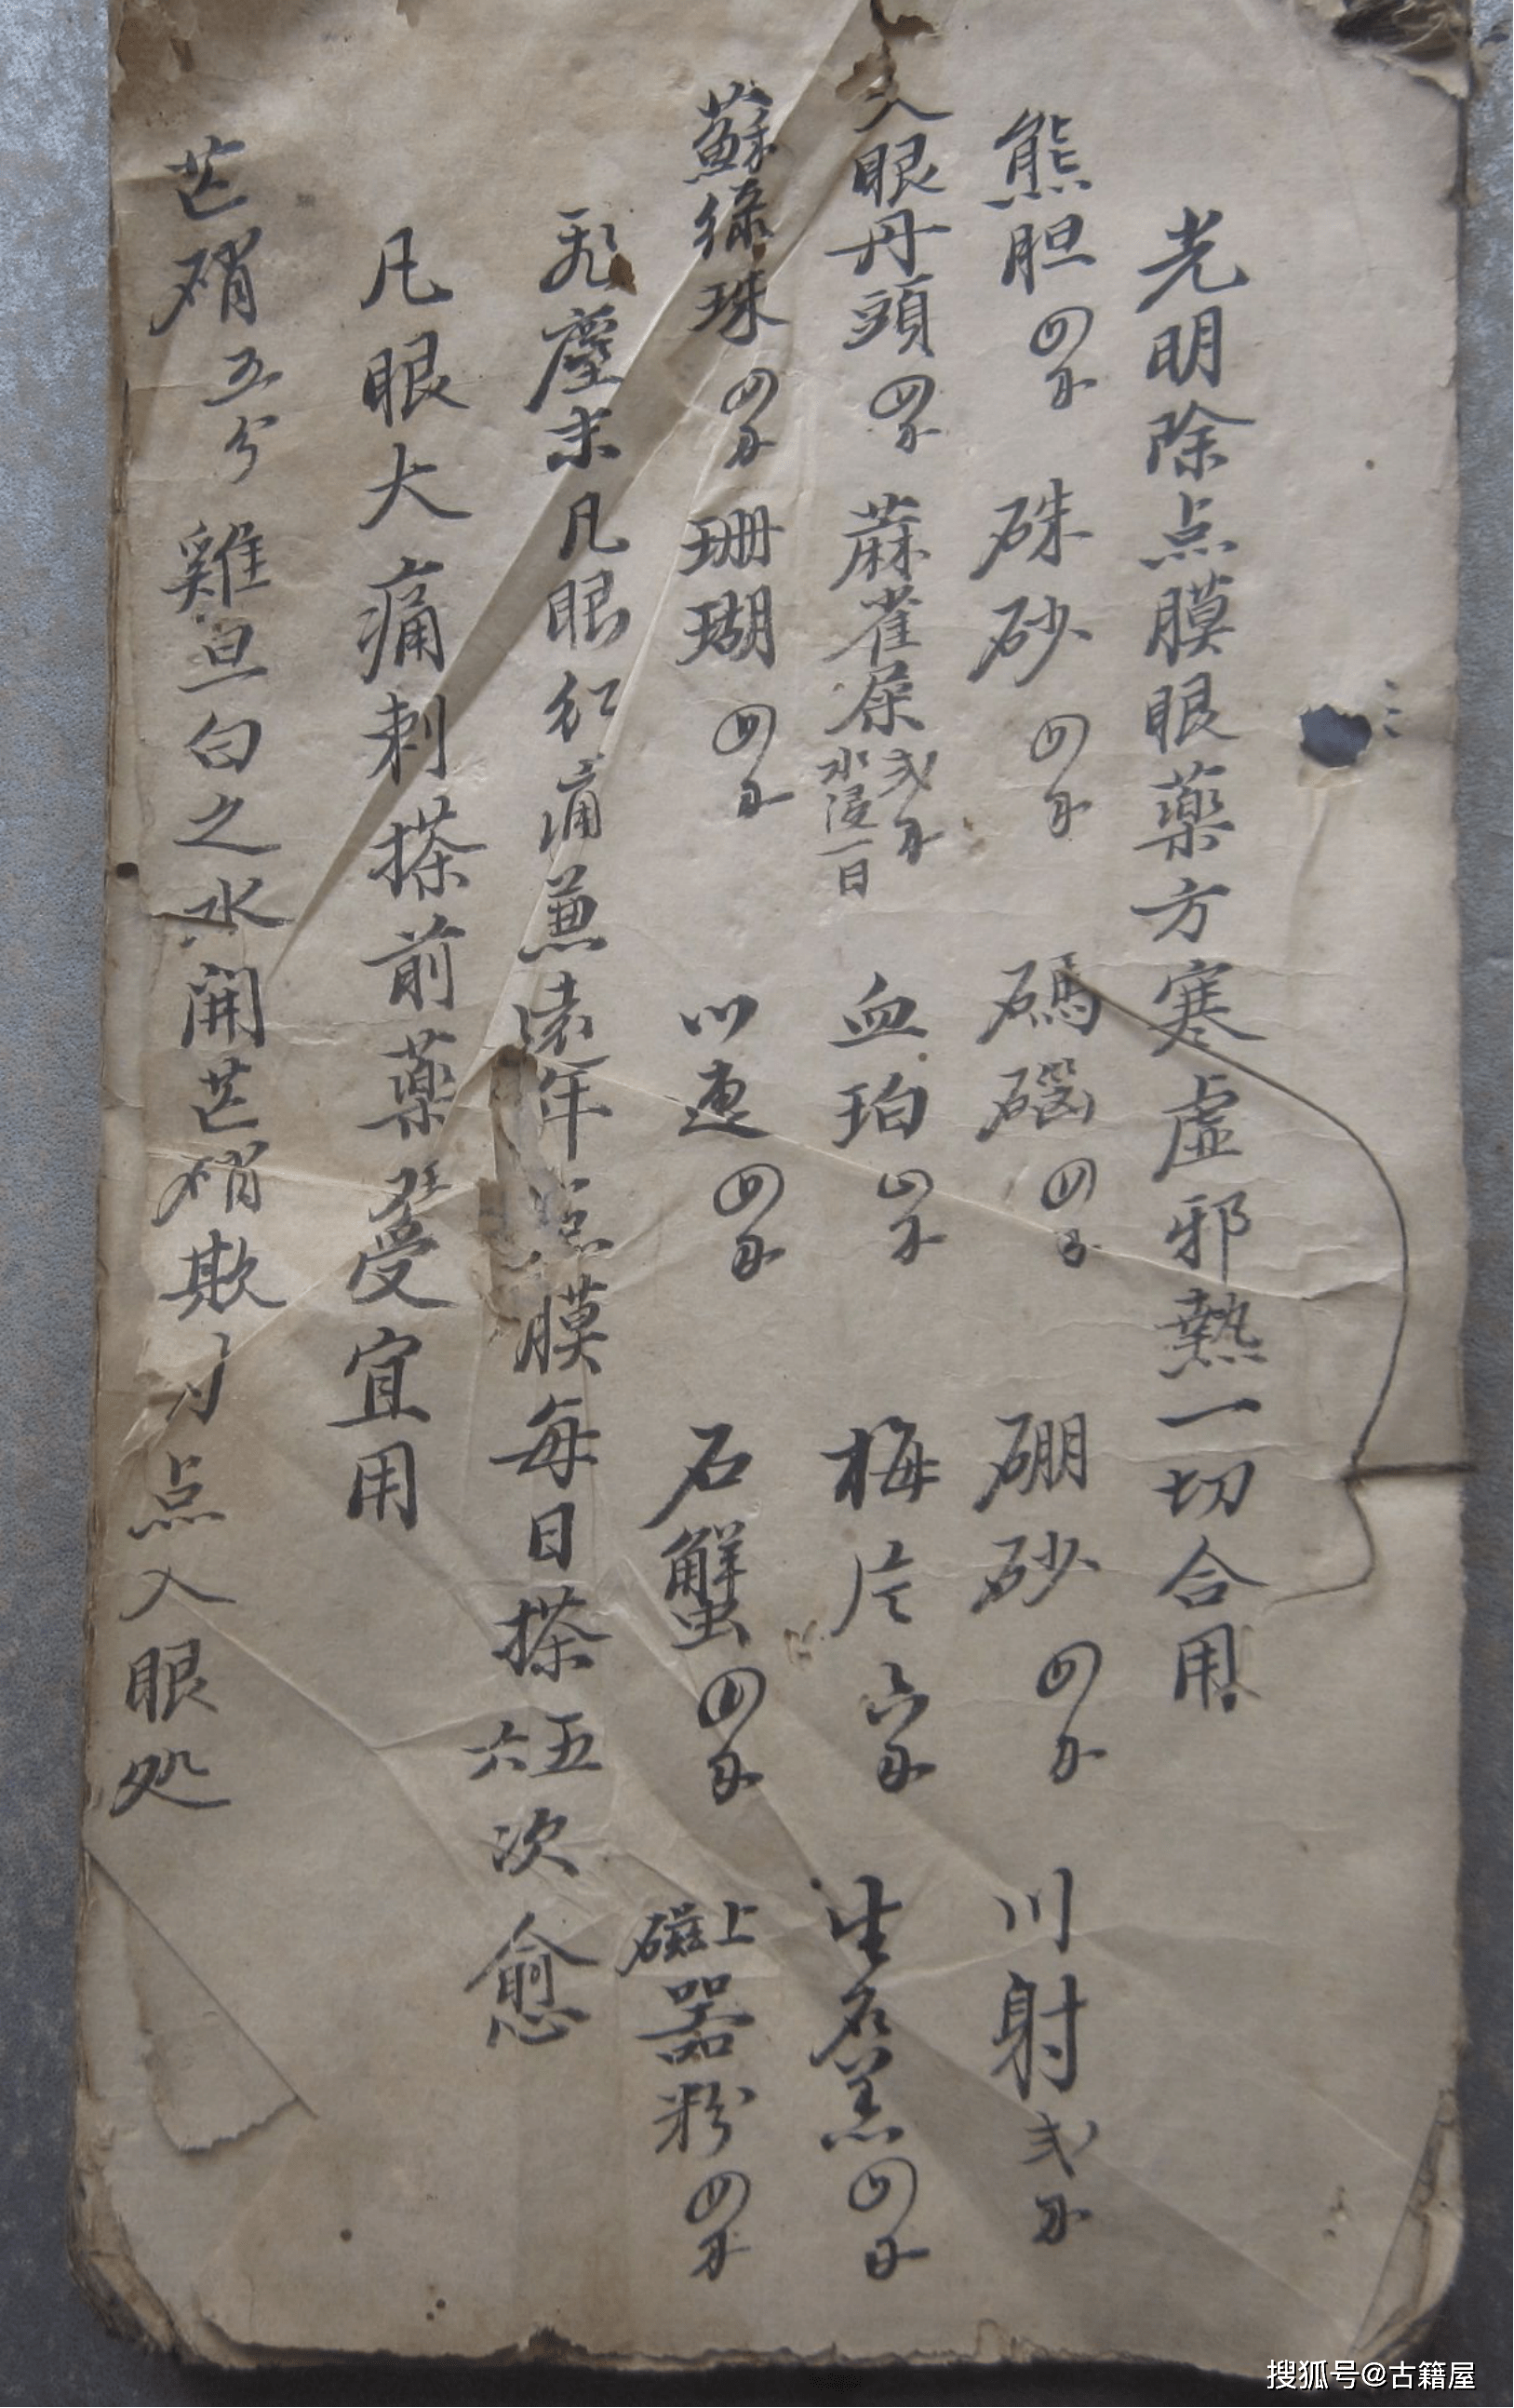 光明除点膜眼薬方寒虚邪熱一切合用
熊胆四分 硃砂四分 碼碯四分 硼砂四分 川射弍分
入眼丹頭四分 蔴雀屎弍分水浸一日 血珀四分 梅片六分 生石羔四分
蘇綠珠四分 珊瑚四分 川連四分 石蟹四分 上磁器粉四分
飛塵末凡眼紅痛兼遠年点膜每日搽五六次愈
凡眼大痛刺搽前薬受宜用
芒硝五分 雞旦白之水開芒硝欺 点入眼処
搜狐号@古籍屋